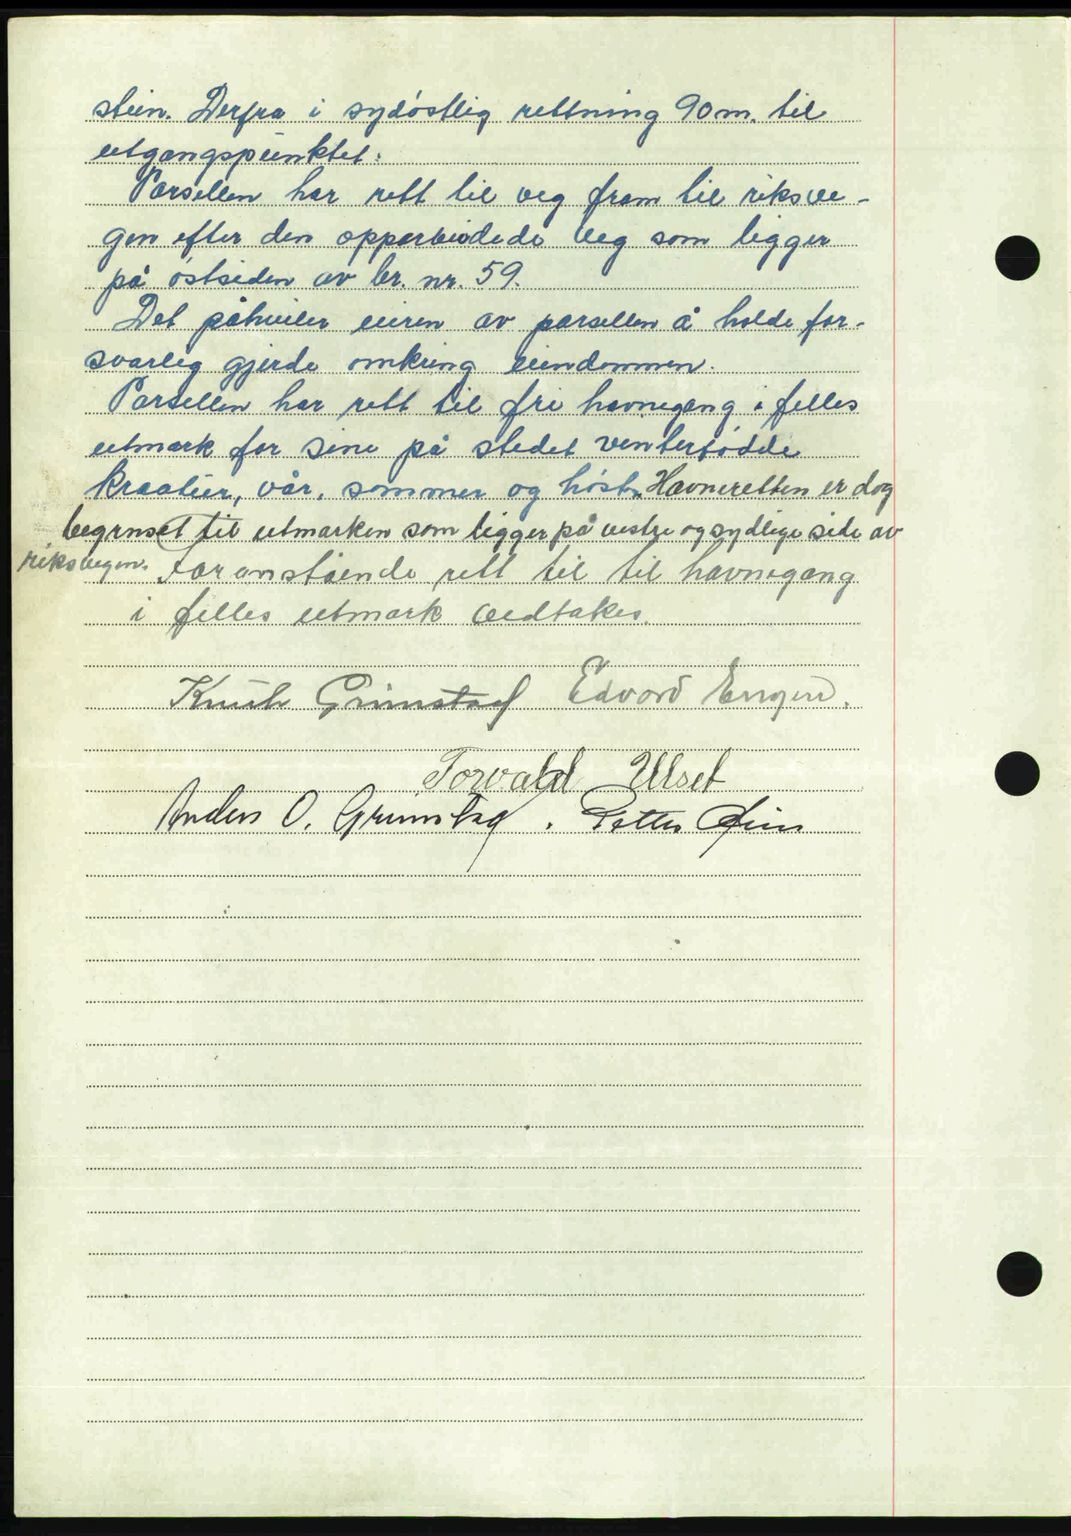 stein. Derfra i sydöstlig rettning 90 m. til
utgangspunktet.
Parsellen har rett til veg fram til riksve-
gen efter den opparbeidede veg som ligger
på östsiden av br. nr. 59.
Det påhviler eieren av parsellen å holde for-
svarlig gjerde omkring eiendommen.
Parsellen har rett til fri havnegang i felles
utmark for sine på stedet vinterfødde
kreatur, vår, sommer og höst. Havneretten er dog
begrnset til utmarken som ligger på vestre og sydlige side av
riksvegen. Foranstående rett til til havnegang
i felles utmark vedtakes.
Knut Grimstad Edvard Engen.
Torvald Ulset
Anders O. Grimstad. Petter